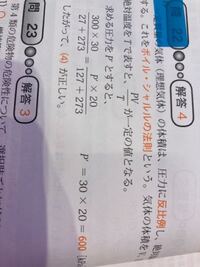 問 22 解答 4
気体（理想気体）の体積は、圧力に反比例し、絶
する。これをボイル・シャルルの法則という。気体の体積を
絶対温度をTで表すと、PV/Tが一定の値となる。
求める圧力をP'とすると、
300×30/27+273 = P'×20/127+273
P'＝30×20＝600
したがって、(4)が正しい。
問 23 解答 3
第1類の危険物の危険性について